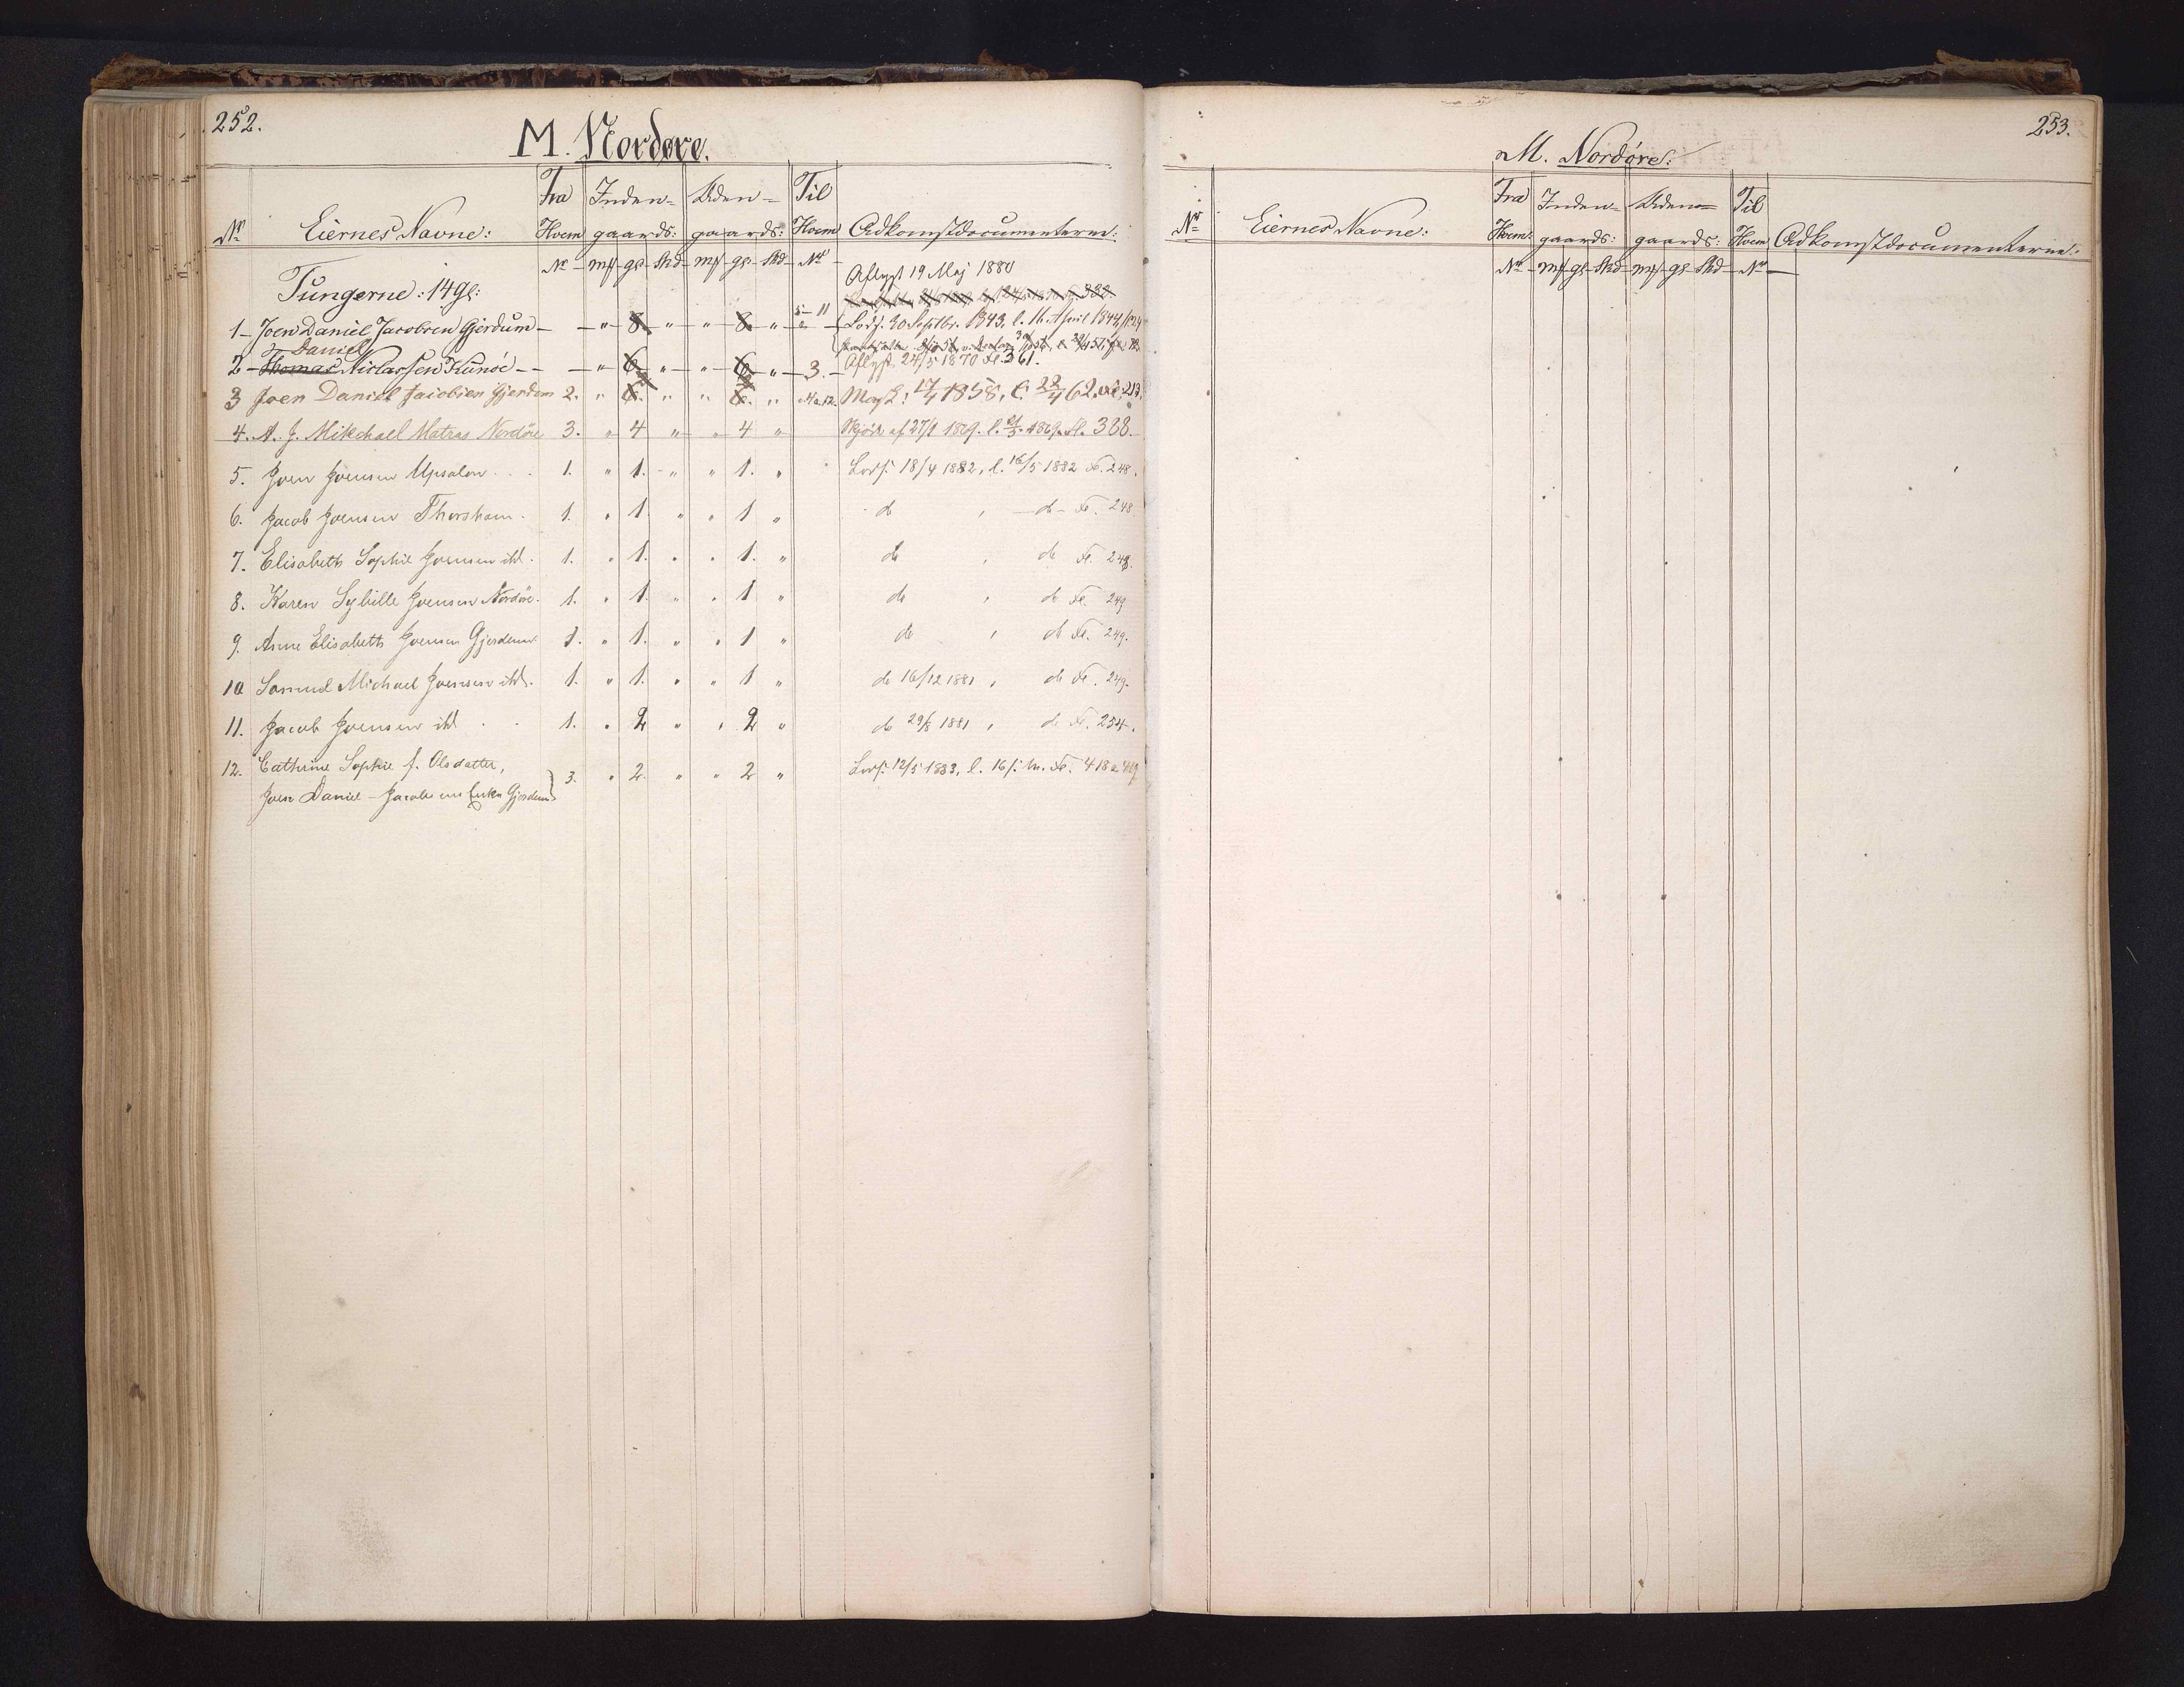 252.
M. Nordøre.
Fra Inden- Uden- Til
№ Eiernes Navne: Hvem gaards: gaards: Hvem Adkomstdocumenterne:
№ - mk - gl - Skd - mk - gl - Skd - №
Aflyst 19 Maj 1880
Tungerne: 14 gl:
1 - Joen Daniel Jacobsen Gjerdum - - " - 8 - " - " - 8 - " - 5-11 Lods. 30 Septbr. 1843, l. 16 April 1844,
Daniel
2 - Thomas Niclassen Kunöe - - " - 6 - " - " - 6 - " - 3. - Aflyst 24/5 1870 Fl. 361.
3 Joen Daniel Jacobsen Gjerdum 2. " 6. " " 6. " 4 a. 12. 17/4 1858, l. 22/4 62. Fl. 213.
4. A. J. Mikchael Matras Nordöre 3. " 4 " " 4 " Skjöde af 27/1 1869. l. 1869. Fl. 388.
5. Joen Joensen Upsalon . . 1. " 1. " " 1. " Lods. 18/4 1882, l. 16/5 1882 Fo. 248.
6. Jacob Joensen Thorshavn . 1. " 1. " " 1 " do , do Fo. 248
7. Elisabeth Sophie Joensen ibd . 1. " 1. " " 1. " do , do Fo. 248.
8. Karen Sybille Joensen Nordöre. 1. " 1. " " 1 " do , do Fo. 249
9. Anne Elisabeth Joensen Gjerdum 1. " 1. " " 1 " do , do Fo. 249.
10 Samuel Michael Joensen ibd. 1. " 1. " " 1 " do 16/12 1881 , do Fo. 249.
11. Jacob Joensen ibd . . 1. " 2 " " 2 " do 29/8 1881 , do Fo. 254.
12. Cathrine Sophie f. Olsdatter, 3. " 2. " " 2 " Lods. 12/5 1883, l. 16/s. M. Fo. 418 a 419
Joen Daniel Jacobsens Enke Gjerdum
253.
M. Nordøre:
Fra Inden- Uden- Til
№ Eiernes Navne: Hvem: gaards: gaards: Hvem Adkomstdocumenterne:
№ - mk - gl - Skd - mk - gl - Skd - №